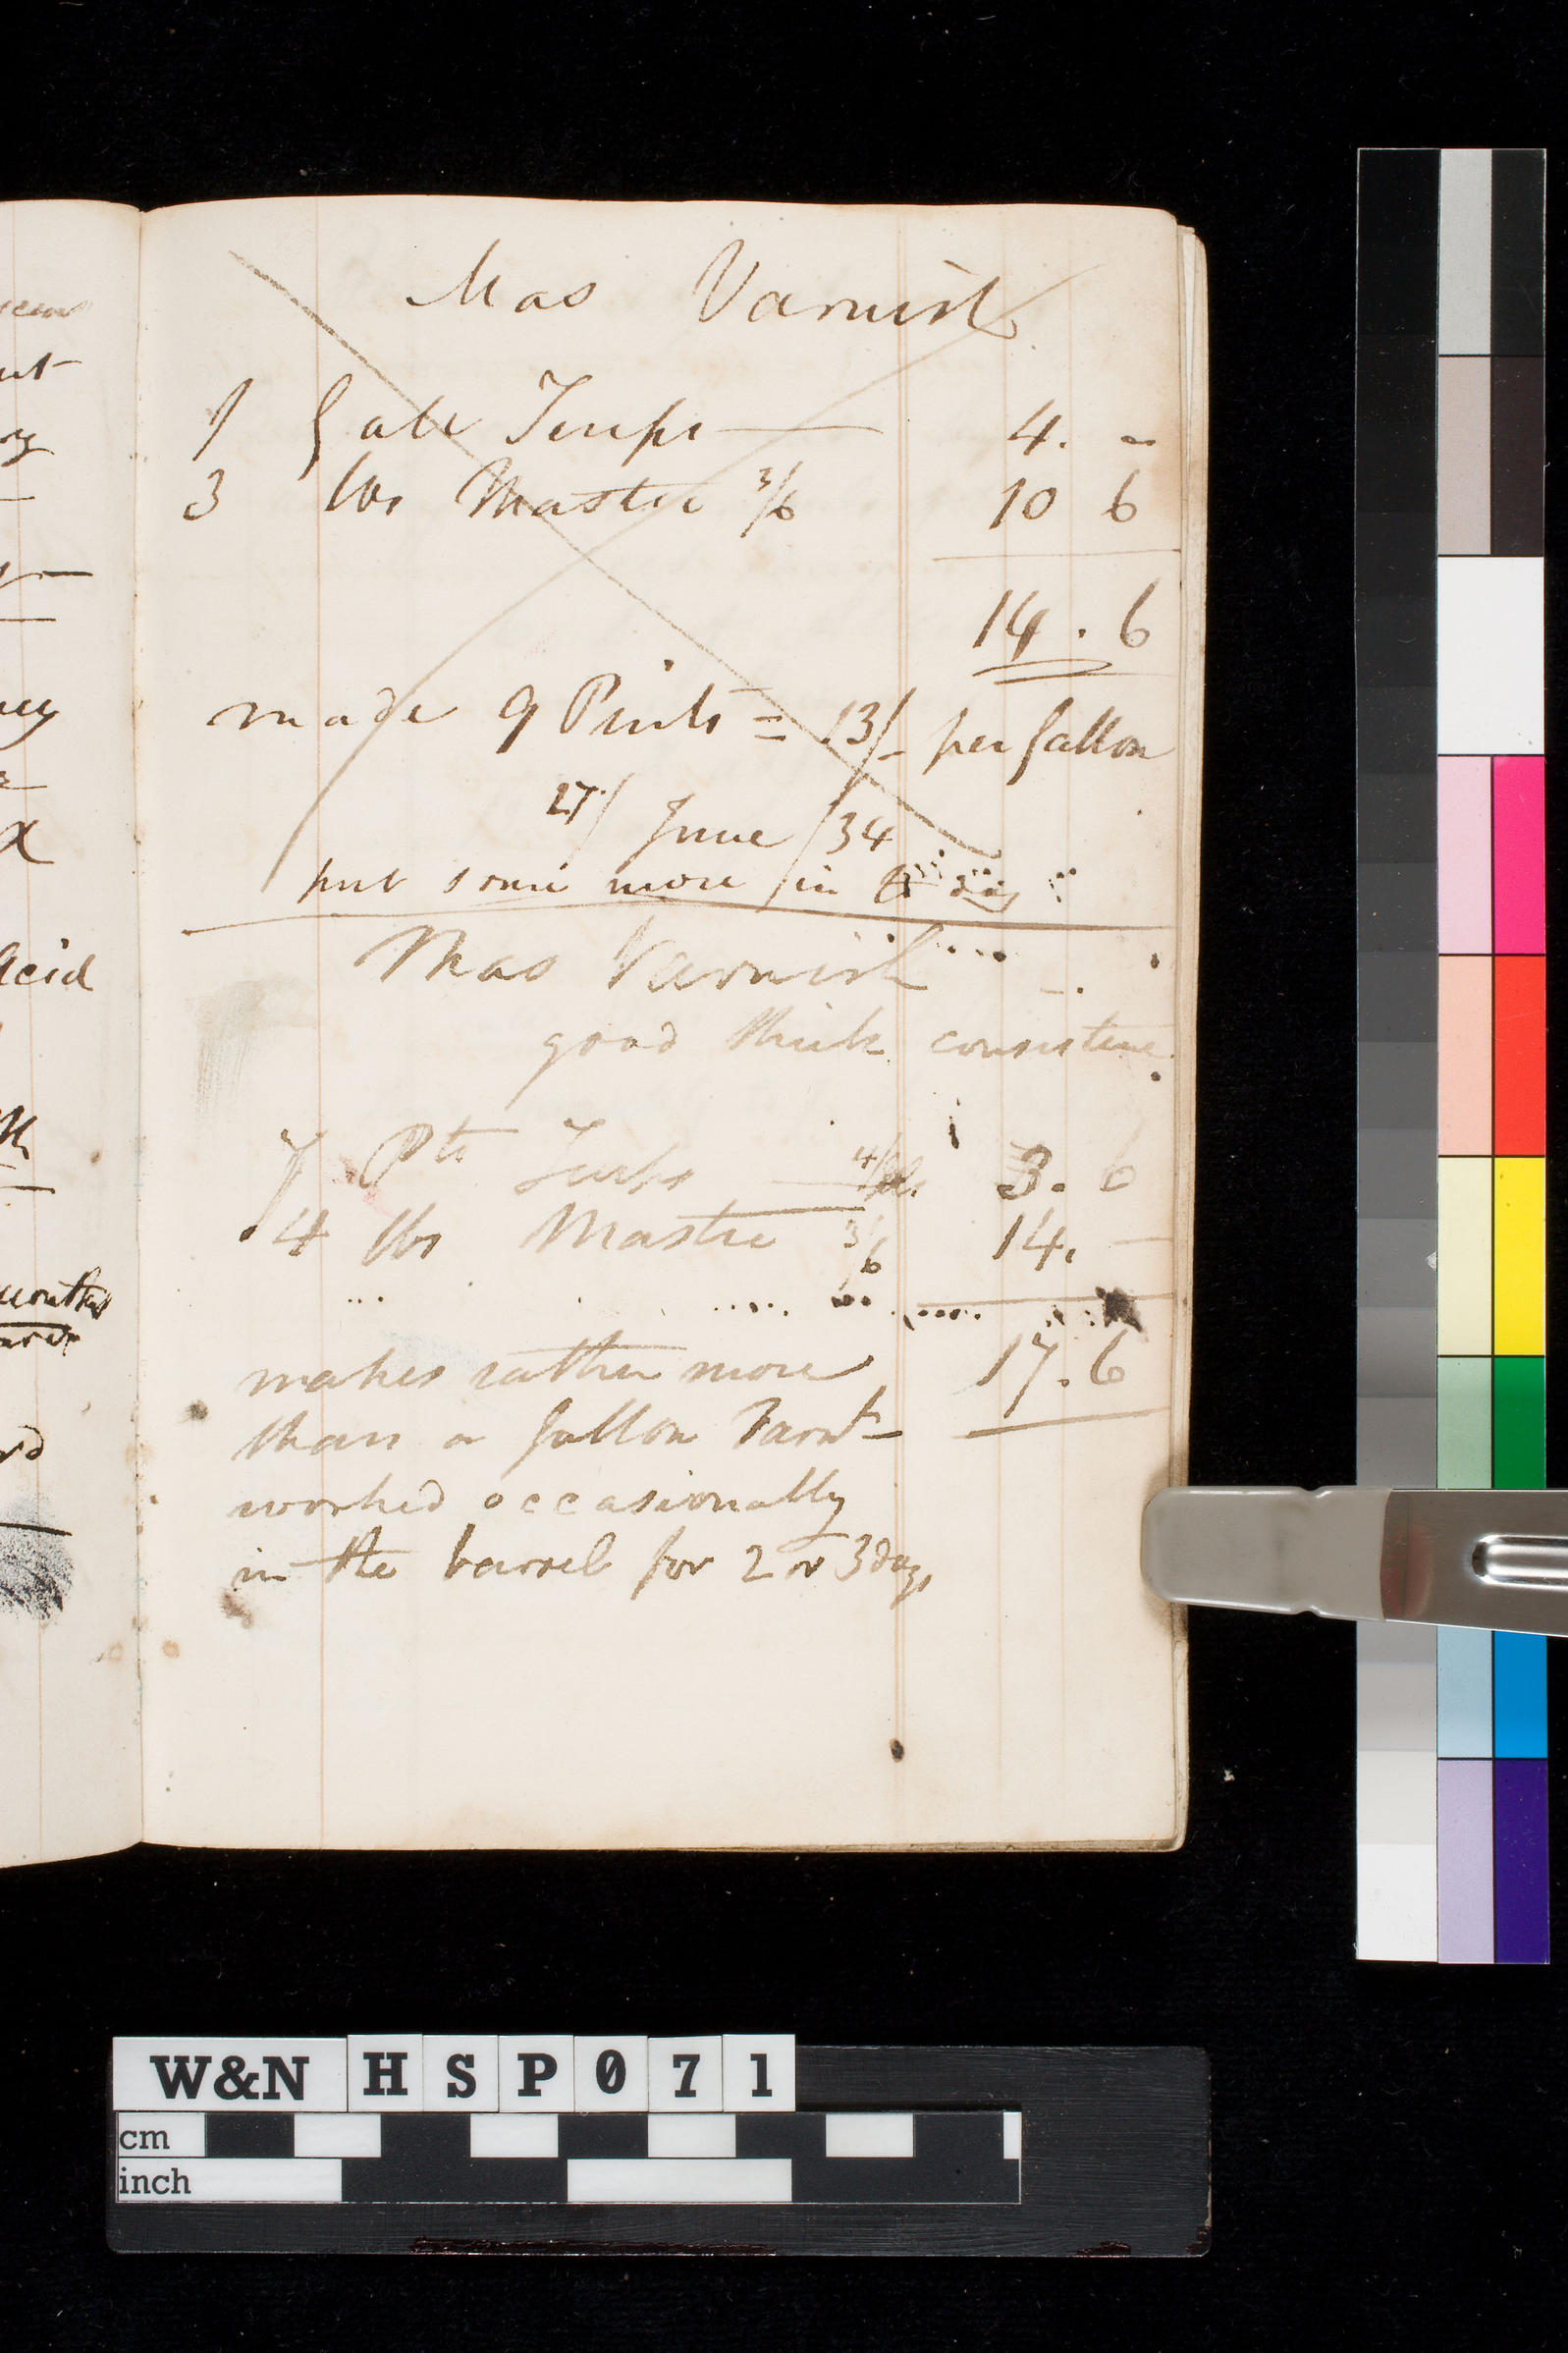 Mas Varnish
1 Gall Turps — 4. -
3 lbs Mastic 3/6 10 6
14 . 6
made 9 Pints = 13/- per gallon
27/ June /34
put some more in
Mas Varnish
good thick consistence
7 Pts Turps 4/ 3. 6
4 lbs Mastic 3/6 14. —
makes rather more 17. 6
than a gallon Varnh
worked occasionally
in the barrel for 2 or 3 days
Acid
W&N HSP071
cm
inch